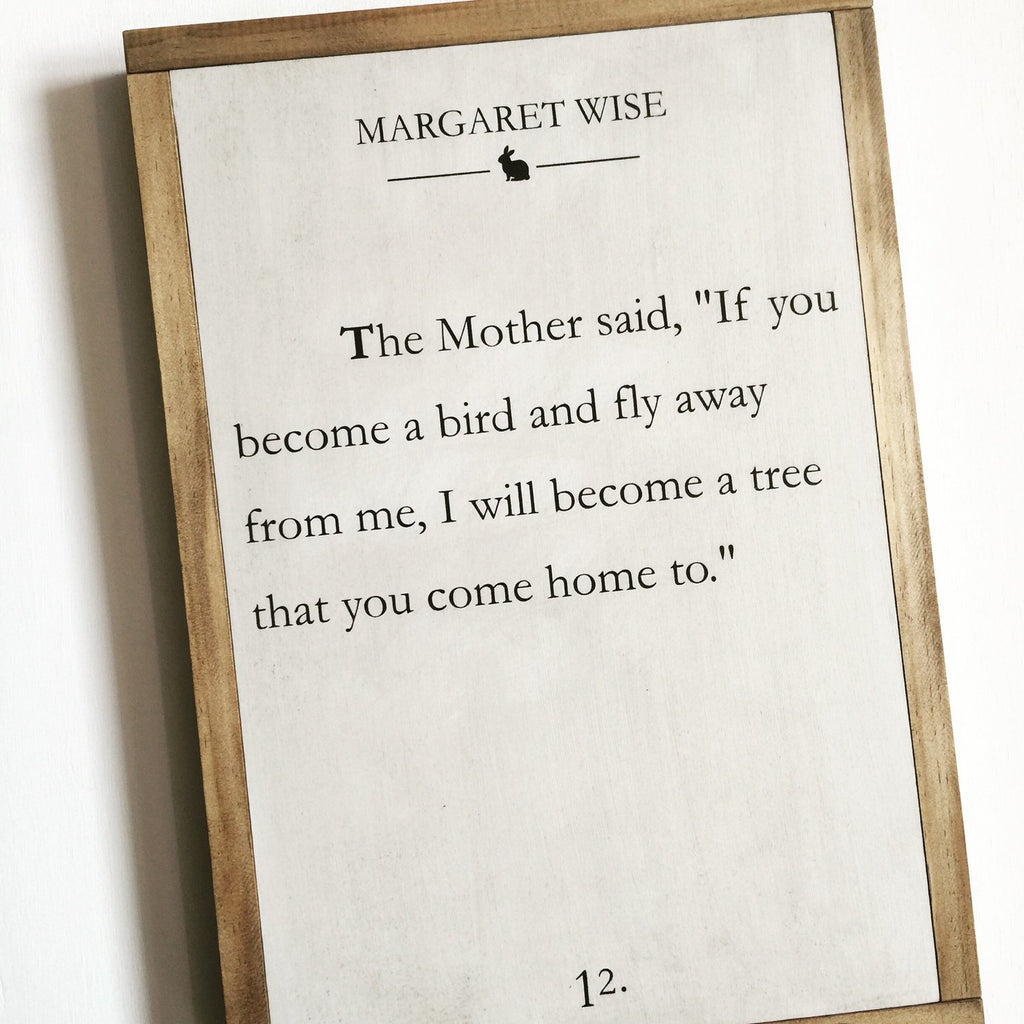 MARGARET WISE
The Mother said, "If you
become a bird and fly away
from me, I will become a tree
that you come home to."
12.